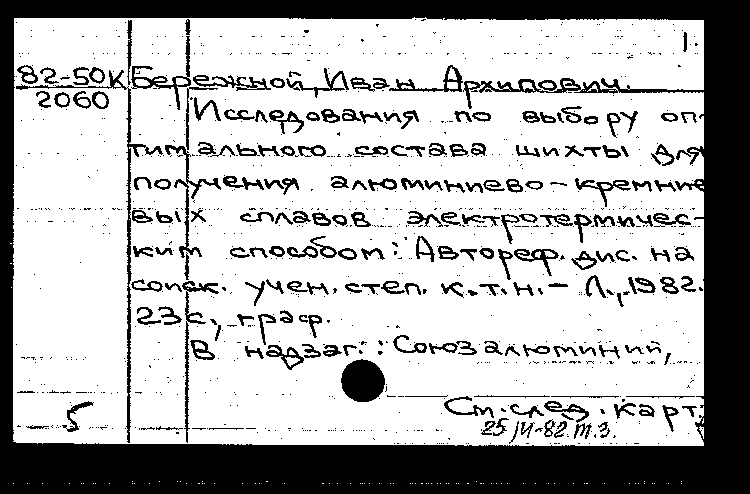 1
82-50К Бережной, Иван Архипович.
2060
Исследования по выбору оп-
тимального состава шихты для
получения алюминиево-кремние
вых сплавов электротермичес-
ким способом: Автореф. дис. на
соиск. учен. степ. к.т.н. - Л., 1982.
23 с., граф.
В надзаг.: Союзалюминий,
См. след. карт.
5
25/IV-82 т.3.